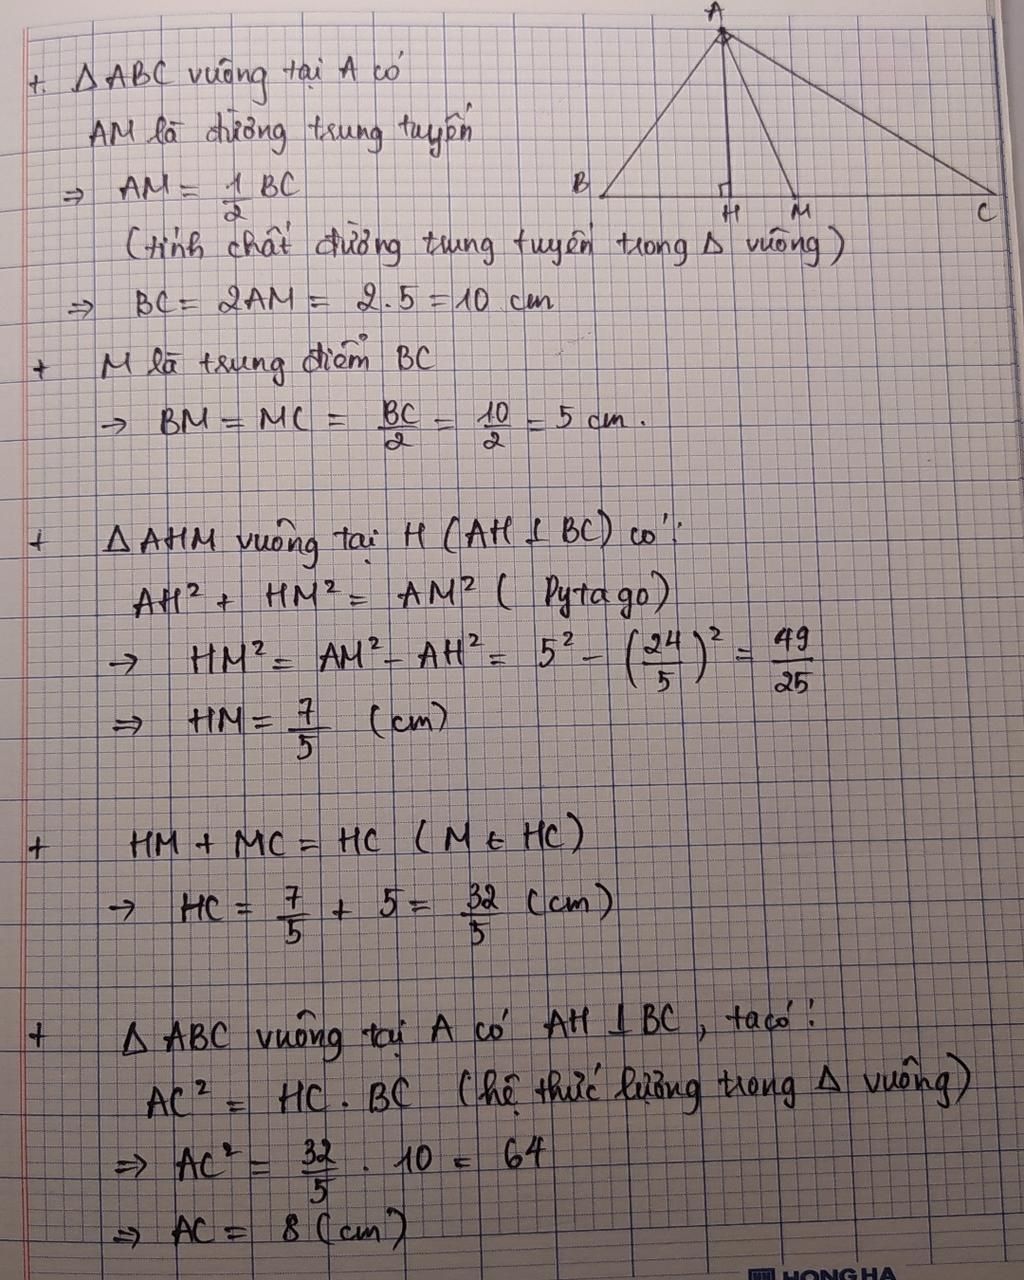 A
B
H
M
C
+. Δ ABC vuông tại A có
AM là đường trung tuyến
⇒ AM = 1/2 BC
(tính chất đường trung tuyến trong Δ vuông)
⇒ BC = 2AM = 2.5 = 10 cm
+ M là trung điểm BC
→ BM = MC = BC/2 = 10/2 = 5 cm.
+ Δ AHM vuông tại H (AH ⊥ BC) có:
AH² + HM² = AM² ( Pytago)
→ HM² = AM² - AH² = 5² - (24/5)² = 49/25
⇒ HM = 7/5 (cm)
+ HM + MC = HC (M ∈ HC)
→ HC = 7/5 + 5 = 32/5 (cm)
+ Δ ABC vuông tại A có AH ⊥ BC, ta có:
AC² = HC . BC (hệ thức lượng trong Δ vuông)
⇒ AC² = 32/5 . 10 = 64
⇒ AC = 8 (cm)
HONG HA